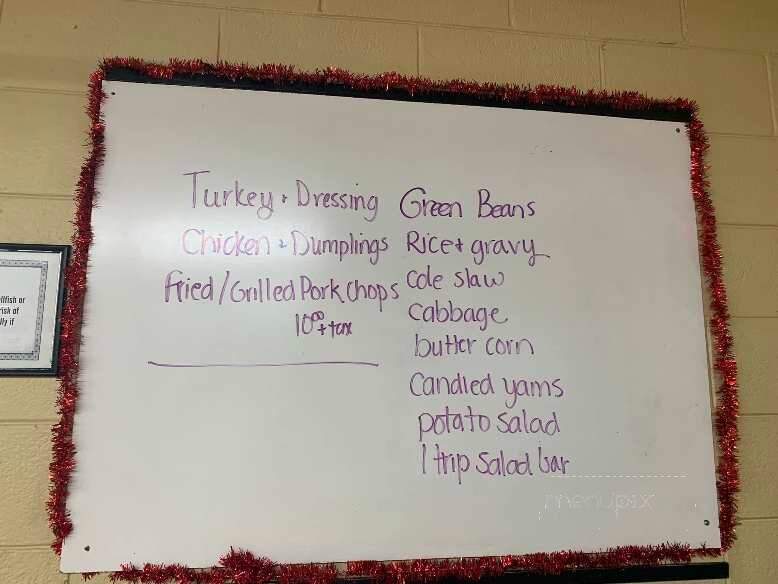 Turkey + Dressing
Chicken + Dumplings
Fried/Grilled Pork Chops
10⁰⁰ + tax
Green Beans
Rice + gravy
cole slaw
cabbage
butter corn
Candied yams
potato salad
1 trip salad bar
menupix
llfish or
risk of
lly if